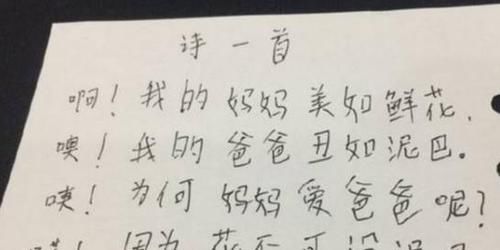 诗一首
啊！我的妈妈美如鲜花.
噢！我的爸爸丑如泥巴.
咦！为何妈妈爱爸爸呢？
！因为花不可没泥